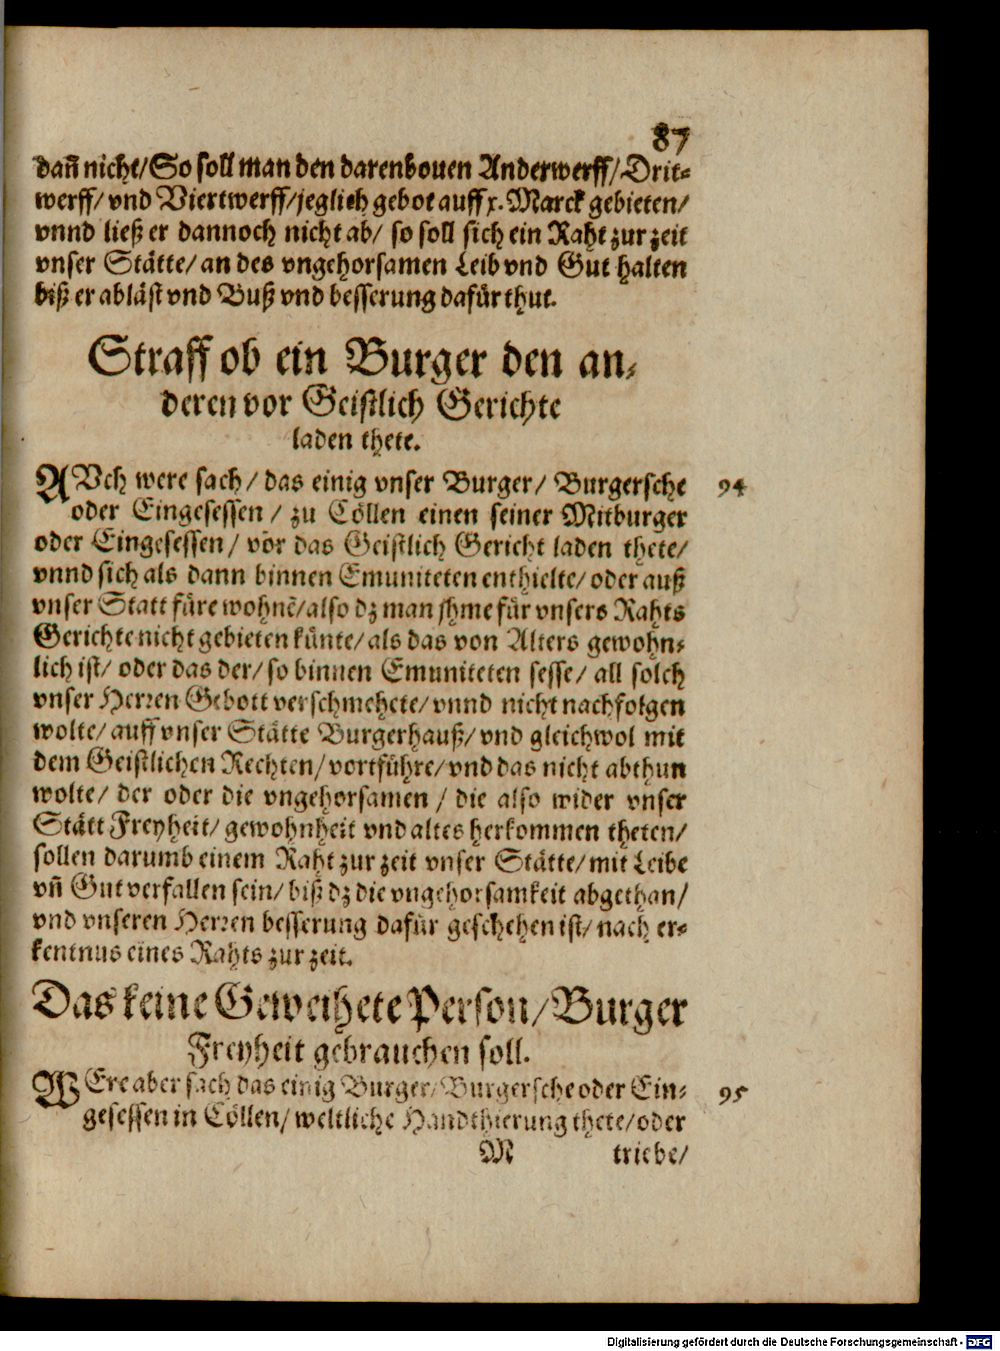 87
dañ nicht/ So soll man den darenbouen Anderwerff/ Drit-
werff/ vnd Viertwerff/ jeglich gebot auff x. Marck gebieten/
vnnd ließ er dannoch nicht ab/ so soll sich ein Raht zur zeit
vnser Stätte/ an des vngehorsamen Leib vnd Gut halten
biß er abläst vnd Buß vnd besserung dafür thut.
Straff ob ein Burger den an-
deren vor Geistlich Gerichte
laden thete.
AVch were sach/ das einig vnser Burger/ Burgersche 94
oder Eingesessen/ zu Cöllen einen seiner Mitburger
oder Eingesessen/ vor das Geistlich Gericht laden thete/
vnnd sich als dann binnen Emuniteten enthielte/ oder auß
vnser Statt füre wohnẽ/ also dz man jhme für vnsers Rahts
Gerichte nicht gebieten künte/ als das von Alters gewohn-
lich ist/ oder das der/ so binnen Emuniteten sesse/ all solch
vnser Herren Gebott verschmehete/ vnnd nicht nachfolgen
wolte/ auff vnser Stätte Burgerhauß/ vnd gleichwol mit
dem Geistlichen Rechten/ vortführe/ vnd das nicht abthun
wolte/ der oder die vngehorsamen/ die also wider vnser
Stätt Freyheit/ gewohnheit vnd altes herkommen theten/
sollen darumb einem Raht zur zeit vnser Stätte/ mit Leibe
vñ Gut verfallen sein/ biß dz die vngehorsamkeit abgethan/
vnd vnseren Herren besserung dafür geschehen ist/ nach er-
kentnus eines Rahts zur zeit.
Das keine Geweihete Person/ Burger
Freyheit gebrauchen soll.
WEre aber sach das einig Burger/ Burgersche oder Ein- 95
gesessen in Cöllen/ weltliche Handthierung thete/ oder
M triebe/
Digitalisierung gefördert durch die Deutsche Forschungsgemeinschaft - DFG